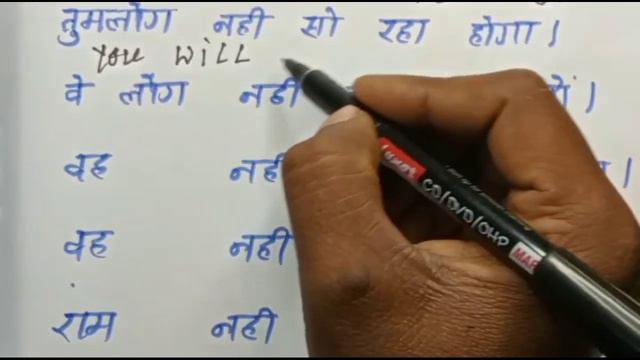 तुमलोग नही सो रहा होगा।
You will
वे लोग नही
वह नही ।
वह नही
राम नही
Luxor CD/DVD/OHP MAR